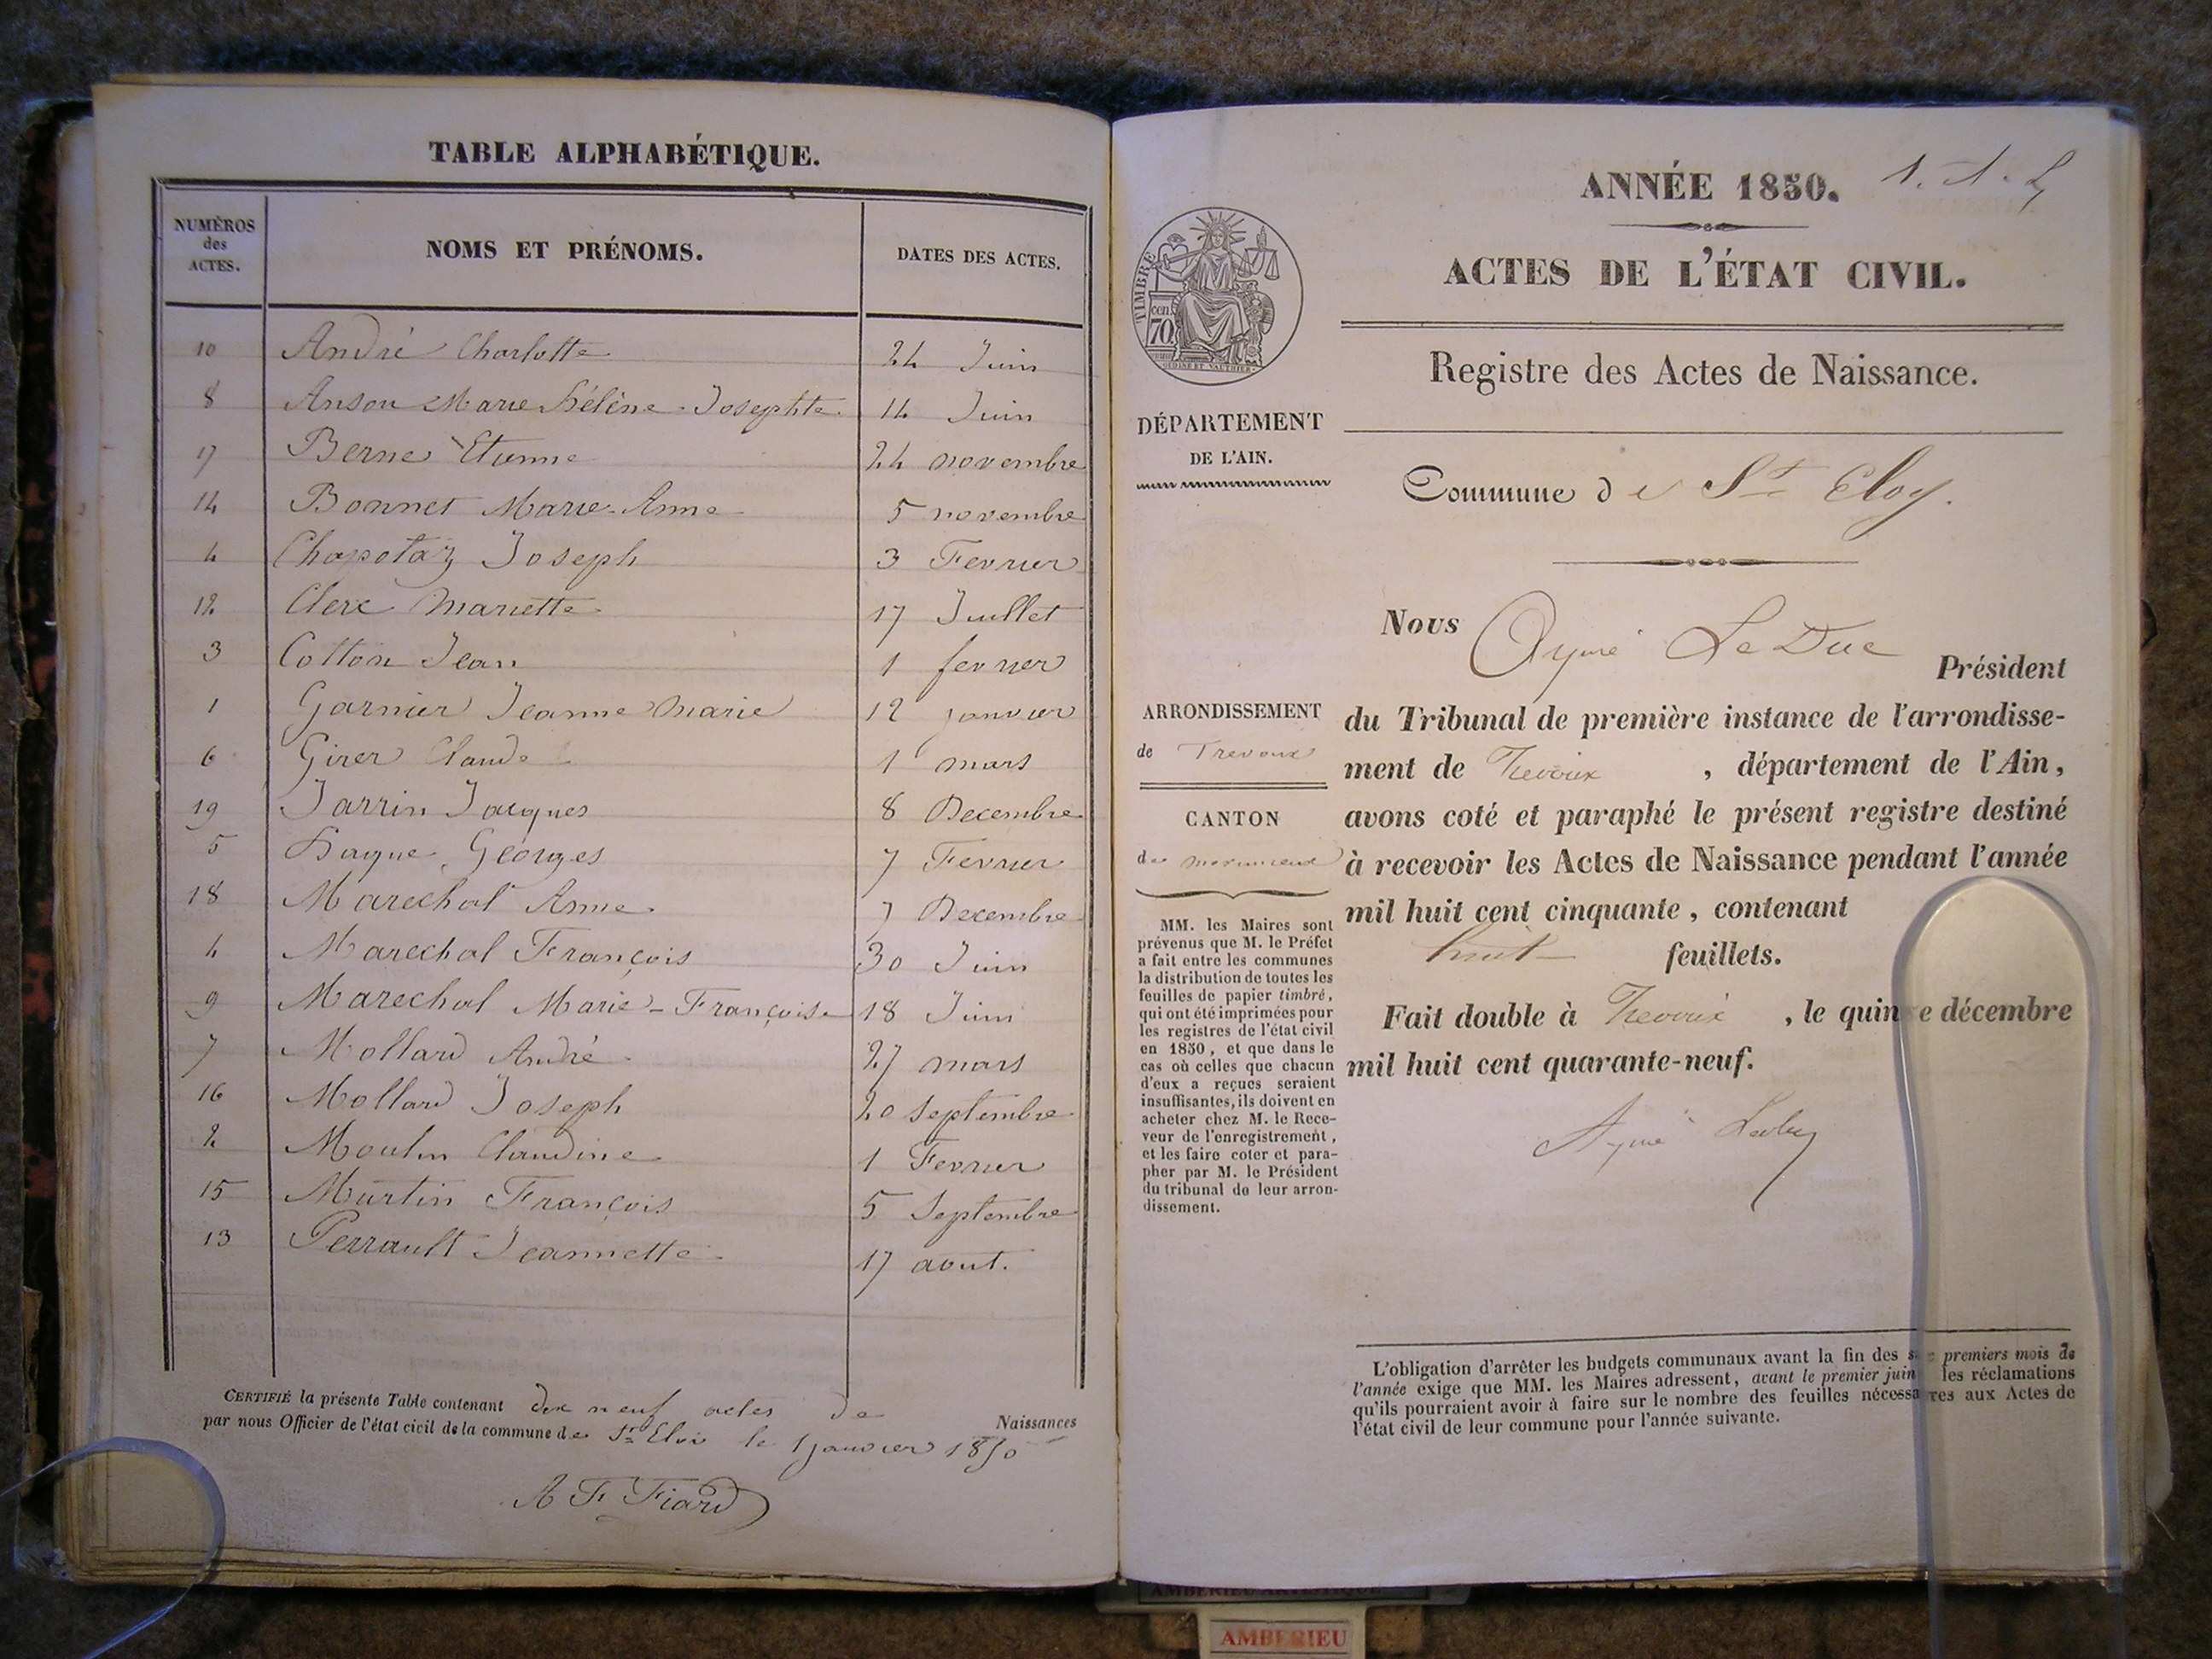 TABLE ALPHABÉTIQUE.
NUMÉROS des ACTES. NOMS ET PRÉNOMS. DATES DES ACTES.
10 André Charlotte 24 Juin
8 Anson Marie Hélène Josephte 14 Juin
17 Berne Etienne 24 novembre
14 Bonnet Marie-Anne 5 novembre
4 Chapotaz Joseph 3 Fevrier
12 Clerc Mariette 17 Juillet
3 Cotton Jean 1 fevrier
1 Garnier Jeanne Marie 12 janvier
6 Girer Claude 1 mars
19 Jarrin Jacques 8 Decembre
5 Georges 7 Fevrier
18 Marechal Anne 7 Decembre
Marechal François 30 Juin
9 Marechal Marie-Françoise 18 Juin
7 Mollard André 27 mars
16 Mollard Joseph 20 Septembre
2 Moulin Claudine 1 Fevrier
15 Martin François 5 Septembre
13 Perrault Jeannette 17 aout.
CERTIFIÉ la présente Table contenant dix neuf actes de Naissances
par nous Officier de l'état civil de la commune de St Eloi le 1 janvier 1850
A F Fiard
ANNÉE 1850.
TIMBRE
cen. 70
ACTES DE L'ÉTAT CIVIL.
Registre des Actes de Naissance.
DÉPARTEMENT
DE L'AIN.
Commune de St Eloy.
Nous Aymé Le Duc Président
du Tribunal de première instance de l'arrondisse-
ment de Trévoux, département de l'Ain,
avons coté et paraphé le présent registre destiné
à recevoir les Actes de Naissance pendant l'année
mil huit cent cinquante, contenant
huit feuillets.
Fait double à Trévoux, le quinze décembre
mil huit cent quarante-neuf.
Aymé Leduc
ARRONDISSEMENT
de Trevoux
CANTON
de meximieux
MM. les Maires sont
prévenus que M. le Préfet
a fait entre les communes
la distribution de toutes les
feuilles de papier timbré,
qui ont été imprimées pour
les registres de l'état civil
en 1850, et que dans le
cas où celles que chacun
d'eux a reçues seraient
insuffisantes, ils doivent en
acheter chez M. le Rece-
veur de l'enregistrement,
et les faire coter et para-
pher par M. le Président
du tribunal de leur arron-
dissement.
L'obligation d'arrêter les budgets communaux avant la fin des six premiers mois de
l'année exige que MM. les Maires adressent, avant le premier juin les réclamations
qu'ils pourraient avoir à faire sur le nombre des feuilles nécessaires aux Actes de
l'état civil de leur commune pour l'année suivante.
AMBERIEU